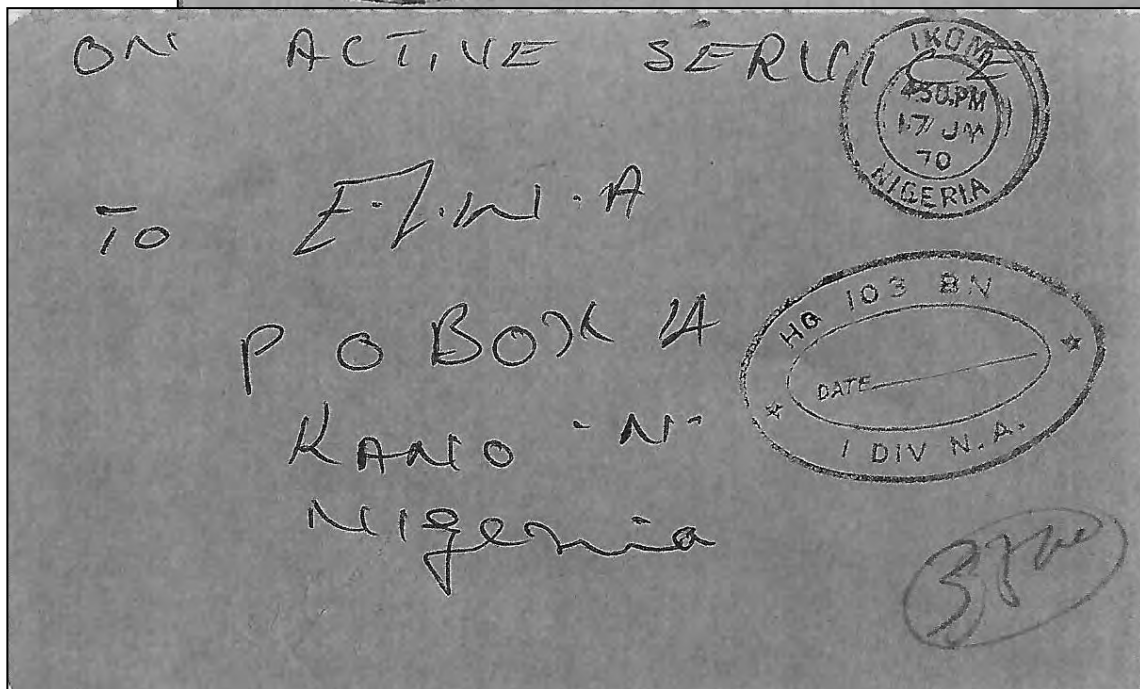 ON ACTIVE SERVICE
IKOM
4 30 PM
17 JY
70
NIGERIA
TO E.Z.W.A
P O BOX 14
KANO - N -
Nigeria
HQ 103 BN
DATE
1 DIV N.A.